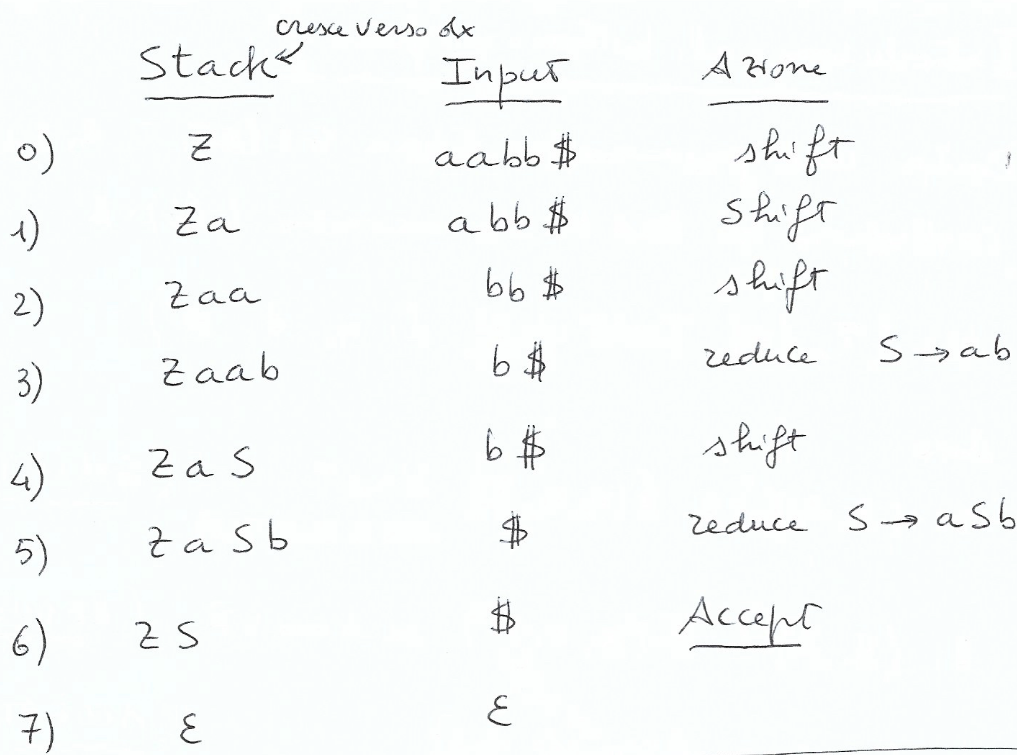 cresce verso dx
Stack Input Azione
0) Z aabb$ shift
1) Za abb$ Shift
2) Zaa bb$ shift
3) Zaab b$ reduce S → ab
4) ZaS b$ shift
5) ZaSb $ reduce S → aSb
6) ZS $ Accept
7) ε ε